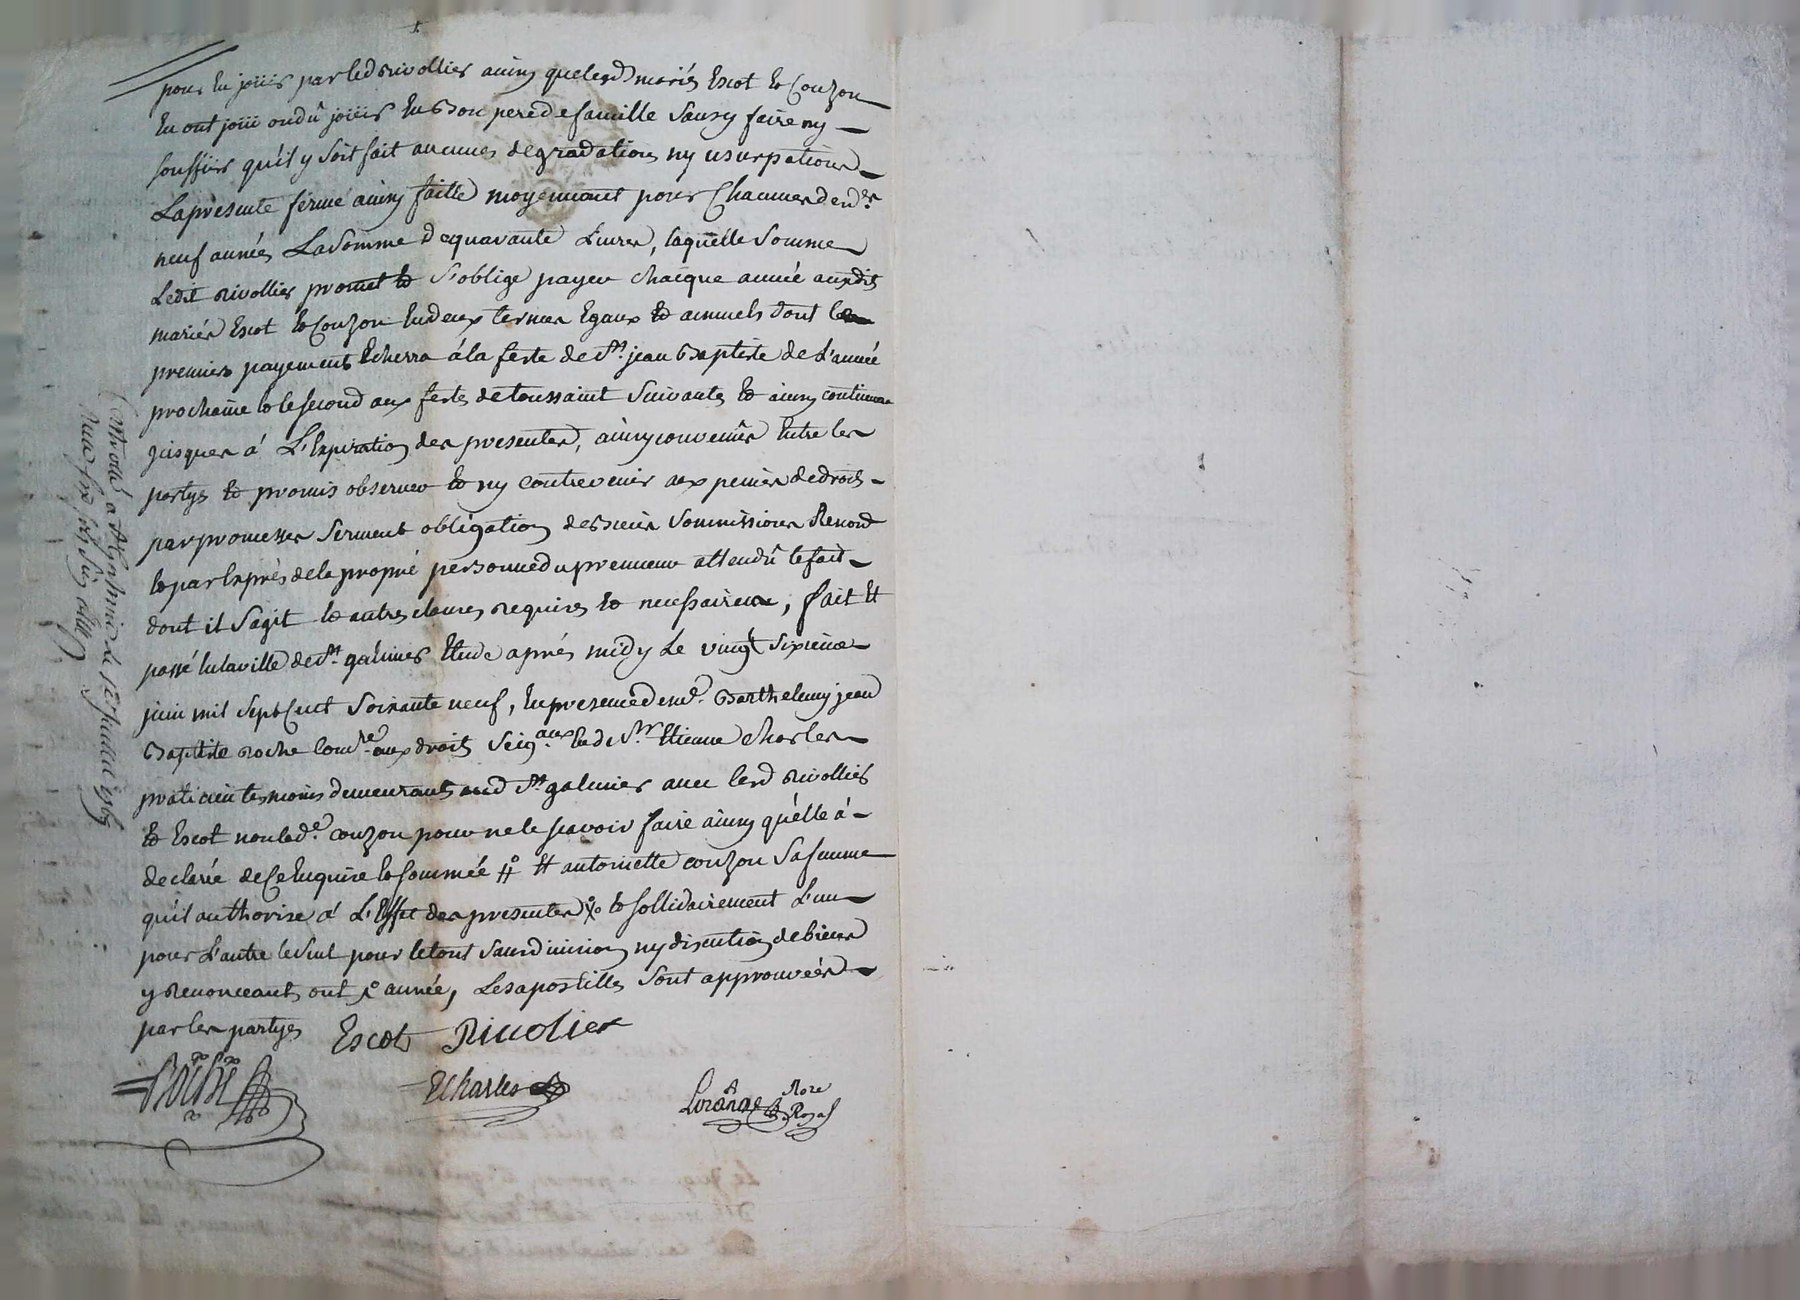 pour en joüir par led rivollier ainsy que lesd mariés Escot & Couzon
en ont joüi ou dû joüir en bon pere de famille sans y faire ny
souffrir qu'il y soit fait aucunes degradations ny usurpations
La presente ferme ainsy faitte moyennant pour Chacune desd.
neuf années La Somme de quarante Livres, laquelle Somme
Ledit rivollier promet & s'oblige payer chaque année auxdits
mariés Escot & Couzon en deux termes Egaux & annuels dont le
premier payement Echerra á la feste de St. jean Baptiste de L'année
prochaine & le second aux festes de toussaint Suivante & ainsy continuer
jusques á L'Expiration des presentes, ainsy convenus Entre les
partyes & promis observer & ny contrevenir aux peines de droits
par promesses Serment obligation de biens Soumissions Renond
& par Exprès de la propre personne du preneur attendû le fait
dont il s'agit & autres clauses requises & necessaires, fait Et
passé en la ville de St. galmier Etude aprés midy Le vingt sixieme
juin mil sept Cent Soixante neuf, En presence de me. Barthelemy jean
Baptiste roche comre. aux droits Seigaux. & de Sr. Etienne Charles
praticien temoins demeurants aud St. galmier avec lesd rivollier
& Escot non lade. couzon pour ne le scavoir faire ainsy qu'elle á
declarée de Ce Enquise & sommée # Et antoinette couzon Sa femme
qu'il authorise á L'Effet des presentes & sollidairement L'un
pour L'autre le Seul pour le tout Sans division ny discution de biens
y Renonceants ont année, Les apostilles Sont approuvées
par les partyes
Escot Rivolier
Roche
ECharles
Contrôlé a St Galmier Le
Reçu